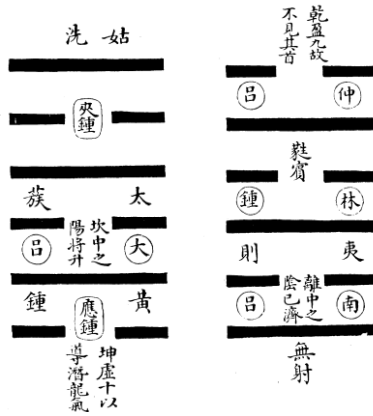 乾盈九故
不見其首
仲吕
蕤賓
林鍾
夷則
離中之
陰已濟
南吕
無射
姑洗
夾鍾
太蔟
坎中之
陽將升
大吕
黃鍾
應鍾
坤虛十以
導潛龍氣